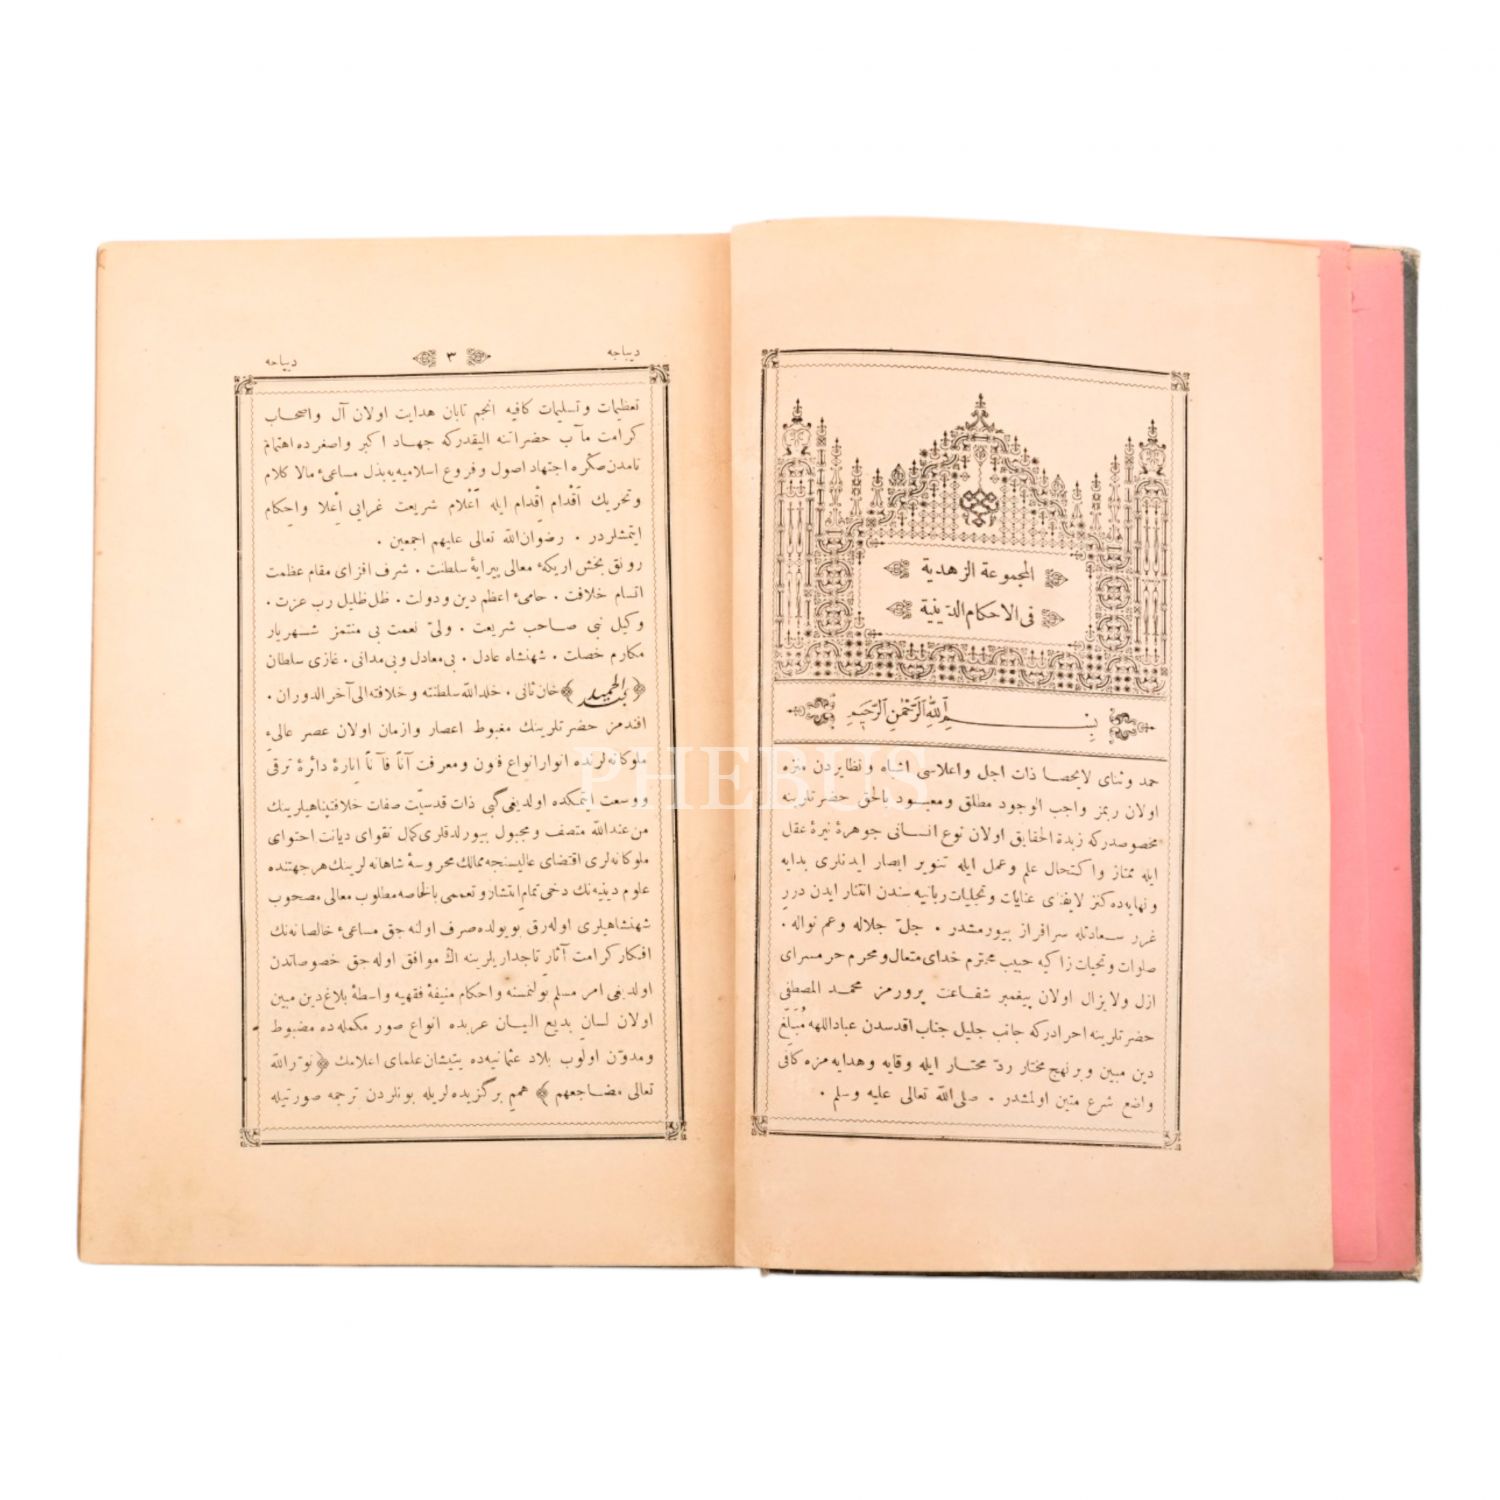 المجموعة الزهدية
فى الاحكام الدينية
بِسْمِ اللهِ الرَّحْمٰنِ الرَّحِيمِ
حمد وثناى لايحصا ذات اجل واعلاسى اشباه ونظايردن منزه
اولان ربمز واجب الوجود مطلق ومعبود بالحق حضرتلرينه
مخصوصدركه زبدة الحقايق اولان نوع انسانى جوهرۀ نيرۀ عقل
ايله ممتاز واكتحال علم وعمل ايله تنوير ابصار ايدنلرى بدايه
ونهايه‌ده كنز لايفناى عنايات وتجليات ربانيه سندن انتثار ايدن درر
غرر سعادتله سرافراز بيورمشدر . جلّ جلاله وعم نواله .
صلوات وتحيات زاكيه حبيب محترم خداى متعال ومحرم حرمسراى
ازل ولايزال اولان پيغمبر شفاعت پرورمز محمد المصطفى
حضرتلرينه احرادركه جانب جليل جناب اقدسدن عباداللهه مُبَلِّغ
دين مبين وبرنهج مختار ردّ محتار ايله وقايه وهدايه مزه كافى
واضع شرع متين اولمشدر . صلى الله تعالى عليه وسلم .
ديباجه
٣
ديباجه
تعظيمات وتسليمات كافيه انجم تابان هدايت اولان آل واصحاب
كرامت مآب حضراتنه اليقدركه جهاد اكبر واصغرده اهتمام
تامدن صكره اجتهاد اصول وفروع اسلاميه‌يه بذل مساعئ مالا كلام
وتحريك اَقْدام اِقْدام ايله اَعْلام شريعت غرايى اِعْلا واحكام
ايتمشلردر . رضوان الله تعالى عليهم اجمعين .
رونق بخش اريكۀ معالى پيرايۀ سلطنت . شرف افزاى مقام عظمت
اتسام خلافت . حامئ اعظم دين ودولت . ظل ظليل رب عزت .
وكيل نبى صاحب شريعت . ولىّ نعمت بى منتمز شهريار
مكارم خصلت . شهنشاه عادل . بى معادل وبى مدانى . غازى سلطان
﴿عبدالحميد﴾ خان ثانى . خلد الله سلطنته وخلافته الى آخر الدوران .
افندمز حضرتلرينك مغبوط اعصار وازمان اولان عصر عالئ
ملوكانه‌لرنده انوار انواع فنون ومعرفت آناً فآناً اِنارۀ دائرۀ ترقى
ووسعت ايتمكده اولديغى كبى ذات قدسيّت صفات خلافتپناهيلرينك
من عند الله متصف ومجبول بيورلدقلرى كمال تقواى ديانت احتواى
ملوكانه‌لرى اقتضاى عاليسنجه ممالك محروسۀ شاهانه‌لرينك هر جهتنده
علوم دينيه‌نك دخى تمام انتشار وتعممى بالخاصه مطلوب معالى مصحوب
شهنشاهيلرى اوله‌رق بويولده صرف اولنه جق مساعئ خالصانه‌نك
افكار كرامت آثار تاجداريلرينه اك موافق اوله جق خصوصاتدن
اولديغى امر مسلم بولنمسنه واحكام منيفۀ فقهيه واسطۀ بلاغ دين مبين
اولان لسان بديع البيان عربده انواع صور مكمله‌ده مضبوط
ومدوّن اولوب بلاد عثمانيه‌ده يتيشان علماى اعلامك ﴿نوّر الله
تعالى مضاجعهم﴾ همم برگزيده‌لريله بونلردن ترجمه صورتيله
PHEBUS